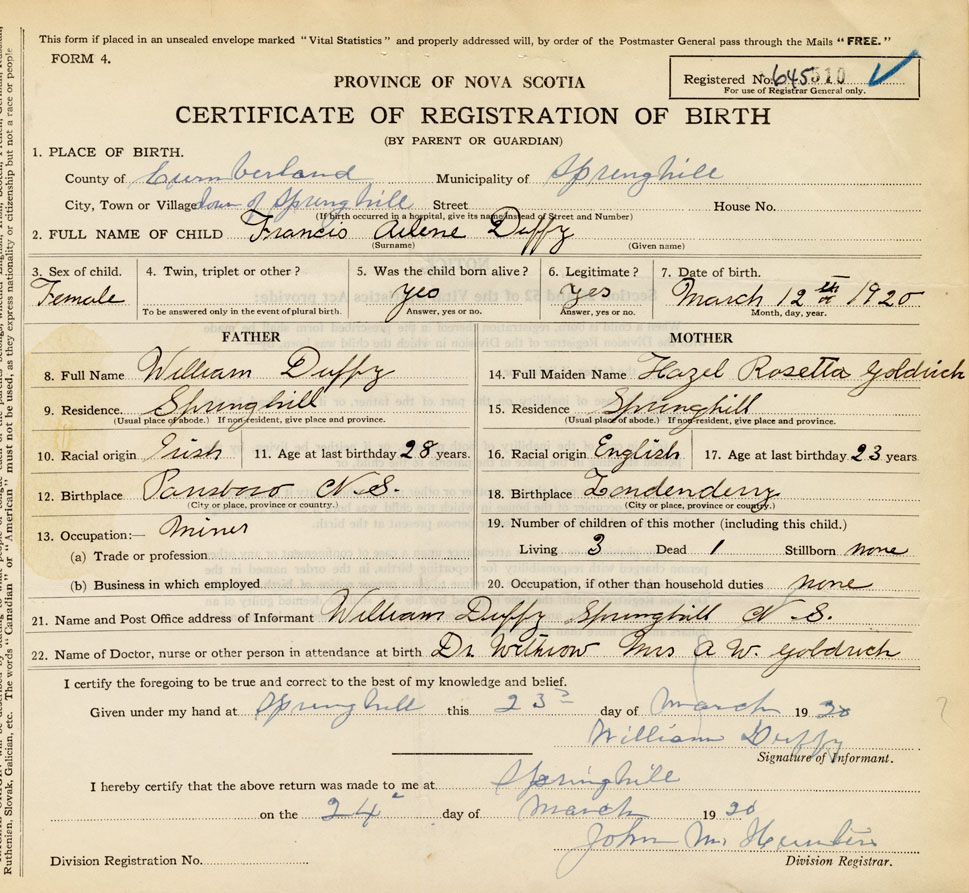 This form if placed in an unsealed envelope marked "Vital Statistics" and properly addressed will, by order of the Postmaster General pass through the Mails "FREE."
FORM 4.
Registered No. 645510
For use of Registrar General only.
PROVINCE OF NOVA SCOTIA
CERTIFICATE OF REGISTRATION OF BIRTH
(BY PARENT OR GUARDIAN)
1. PLACE OF BIRTH.
County of Cumberland Municipality of Springhill
City, Town or Village town of Springhill Street House No.
(If birth occurred in a hospital, give its name instead of Street and Number)
2. FULL NAME OF CHILD Francis Arlene Duffy
(Surname) (Given name)
3. Sex of child. 4. Twin, triplet or other? 5. Was the child born alive? 6. Legitimate? 7. Date of birth.
Female yes yes March 12th 1920
To be answered only in the event of plural birth. Answer, yes or no. Answer, yes or no. Month, day, year.
FATHER MOTHER
8. Full Name William Duffy 14. Full Maiden Name Hazel Rosetta Goldrich
9. Residence. Springhill 15. Residence Springhill
(Usual place of abode.) If non-resident, give place and province. (Usual place of abode.) If non-resident, give place and province.
10. Racial origin Irish 11. Age at last birthday 28 years. 16. Racial origin English 17. Age at last birthday 23 years
12. Birthplace Parsboro N.S. 18. Birthplace Londenderry
(City or place, province or country.) (City or place, province or country.)
13. Occupation:— miner 19. Number of children of this mother (including this child.)
(a) Trade or profession Living 3 Dead 1 Stillborn none
(b) Business in which employed 20. Occupation, if other than household duties none
21. Name and Post Office address of Informant William Duffy Springhill N.S.
22. Name of Doctor, nurse or other person in attendance at birth Dr. Withrow Mrs A W. Goldrich
I certify the foregoing to be true and correct to the best of my knowledge and belief.
Given under my hand at Springhill this 23 day of March 1920
William Duffy
Signature of Informant.
I hereby certify that the above return was made to me at Springhill
on the 24 day of March 1920
John M. Hunter
Division Registrar.
Division Registration No.
Ruthenian, Slovak, Galician, etc. The words "Canadian" or "American" must not be used, as they express nationality or citizenship but not a race or people